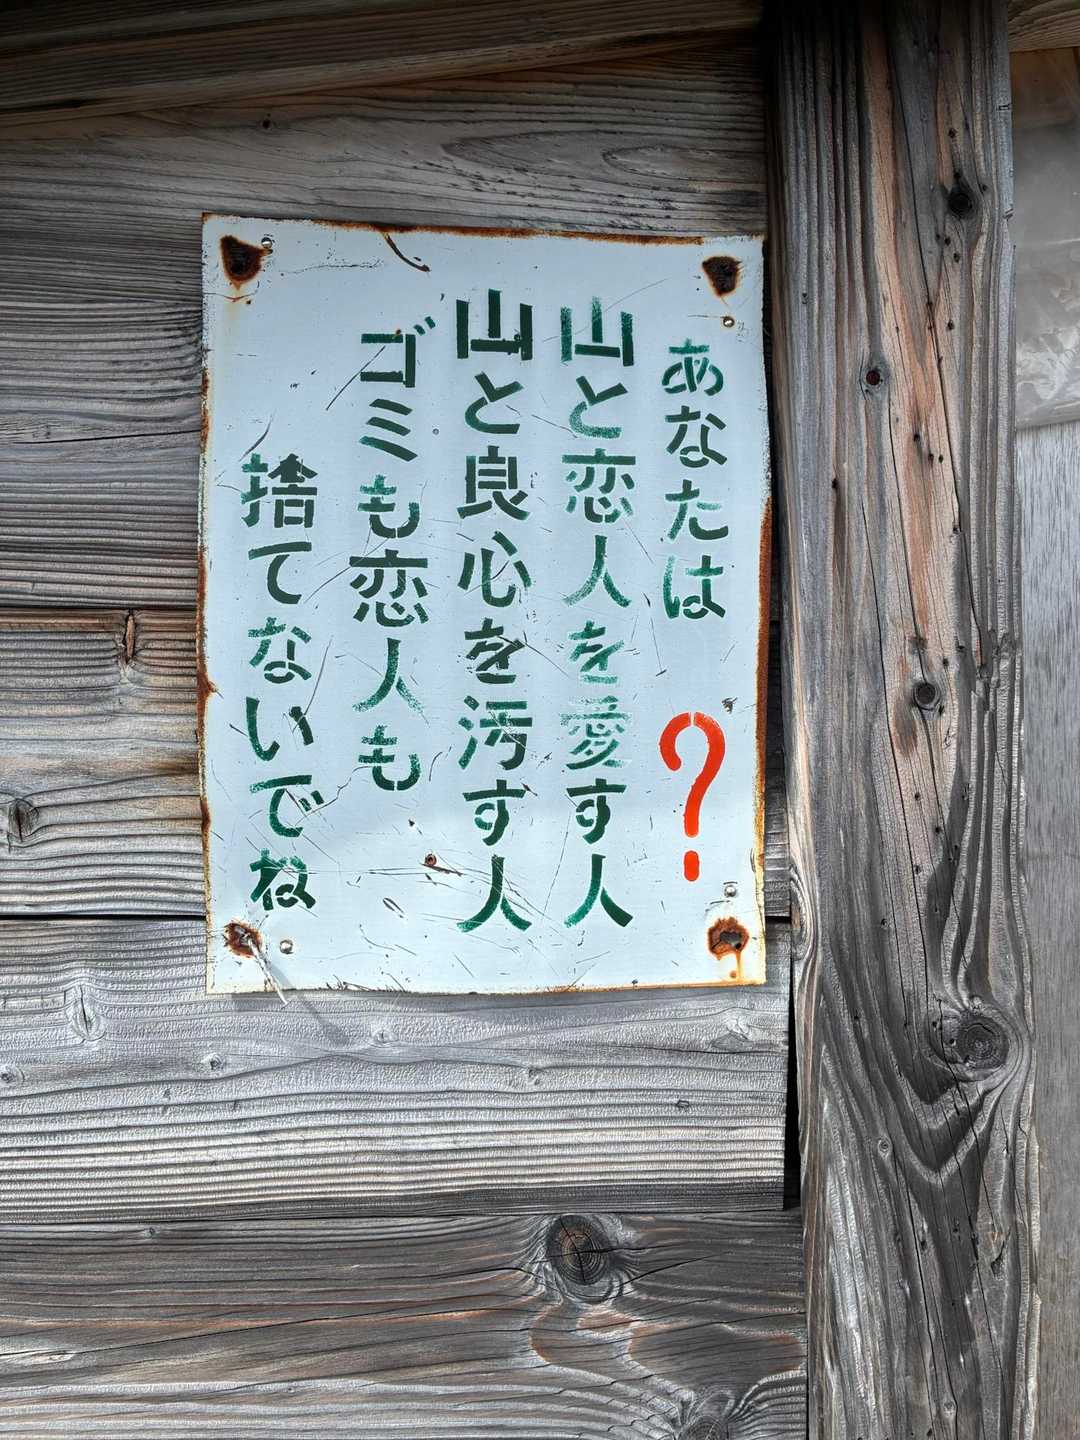 あなたは?
山と恋人を愛す人
山と良心を汚す人
ゴミも恋人も
捨てないでね